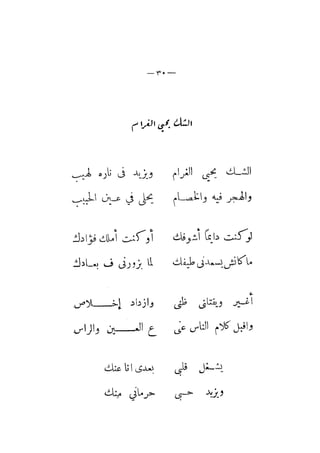 — ٣٠ —
الشك يحيي الغرام
الشــك يحيي الغرام ويزيد فى ناره لهيب
والهجر فيه والخصــام يحلى في عــين الحبيب
لو كنت دايمًا أشوفك أو كنت أملك فؤادك
ما كانش يسعدنى طيفك لما يزورنى ف بعــادك
أغــير ويقتانى ظنى وازداد إخـــــلاص
واقبل كلام الناس عنى ع العـــــين والراس
يشــغل قلبى بعدى انا عنك
ويزيد حــبى حرمانى منك